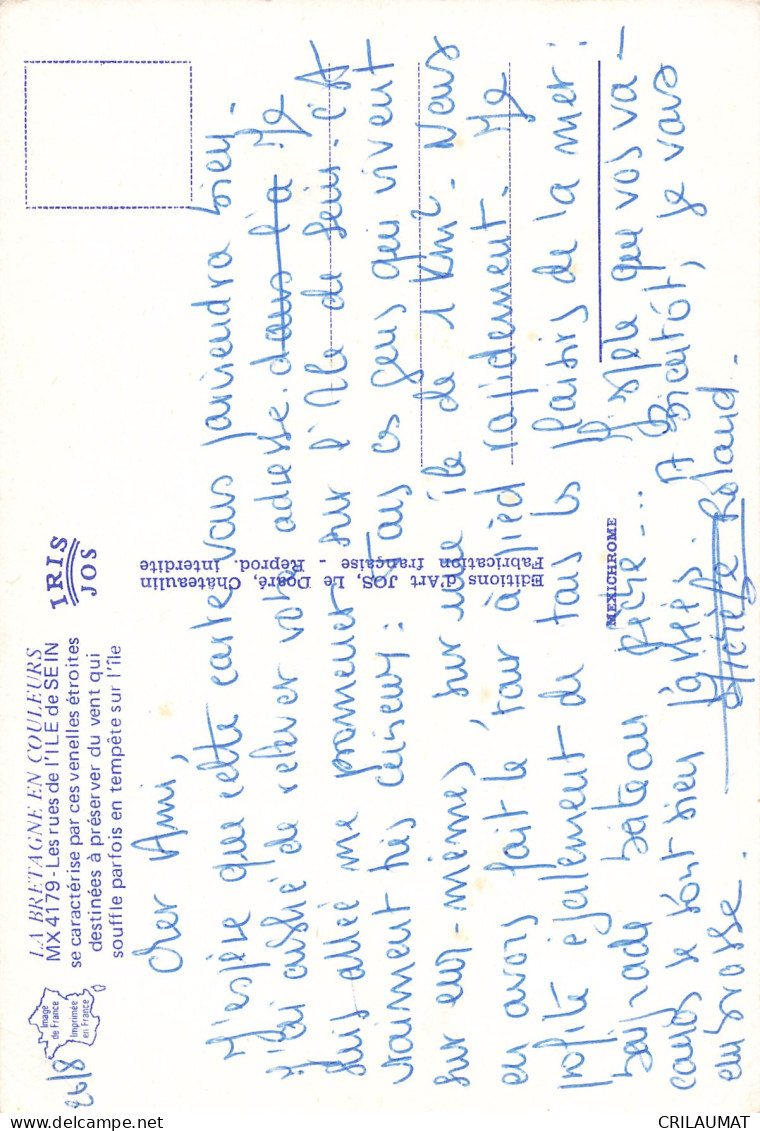 26/8
Image
de France
Imprimée
en France
LA BRETAGNE EN COULEURS
MX 4179 - Les rues de l'ILE de SEIN
se caractérise par ces venelles étroites
destinées à préserver du vent qui
souffle parfois en tempête sur l'île
IRIS
JOS
Cher Ami,
J'espère que cette carte vous parviendra bien.
J'ai oublié de relever votre adresse. dans l'a Je
suis allée me promener sur l'Ile de Sein. c'est
vraiment très curieux: Tous ces gens qui vivent
sur eux-mêmes, sur une île de 1 Km². Nous
en avons fait le tour à pied rapidement. Je
profite également de tous les plaisirs de la mer:
baignade bateau pêche... J'espère que vos va-
cances se sont bien passées. A Bientôt, je vous
embrasse. Roland.
Editions d'Art JOS, Le Doaré, Châteaulin
Fabrication française - Reprod. interdite
MEXICHROME
CRILAUMAT